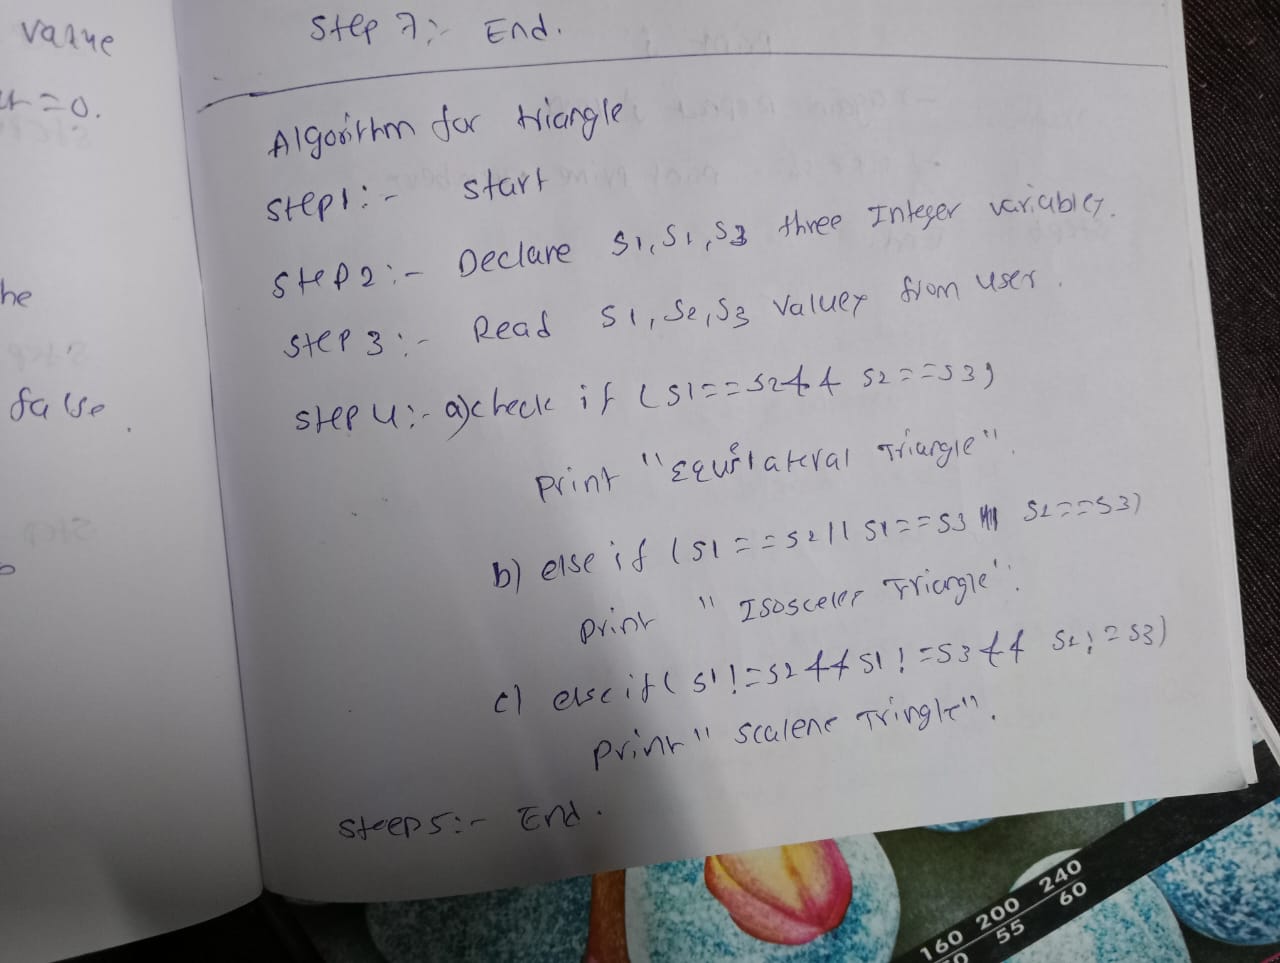 value
r=0.
he
false.
Step 7:- End.
Algorithm for triangle
Step1:- start
Step2:- Declare S1,S1,S3 three Integer variables.
Step 3:- Read S1,Se,S3 values from user.
Step 4:- a)check if (S1==S2&& S2==S3)
Print "Equilateral Triangle".
b) else if (S1==S2|| S1==S3 || S2==S3)
Print "Isosceles Triangle".
c) else if( S1!=S2 && S1!=S3 && S2!=S3)
Print "Scalene Tringle".
Steep5:- End.
160 200 240
55 60